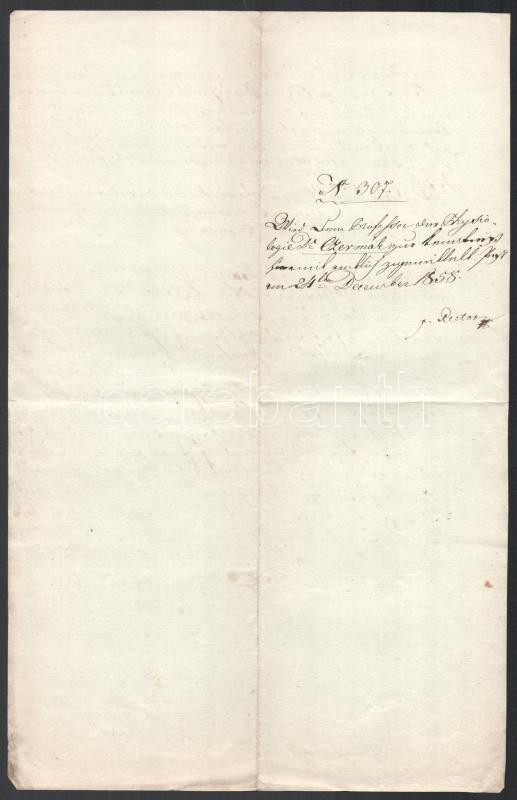 Nr 307.
Wird dem Professor der Physio-
logie Dr Czermak zur
hiemit amtlich zugemittelt
am 24ten December 1858.
p. Rector
darabanth